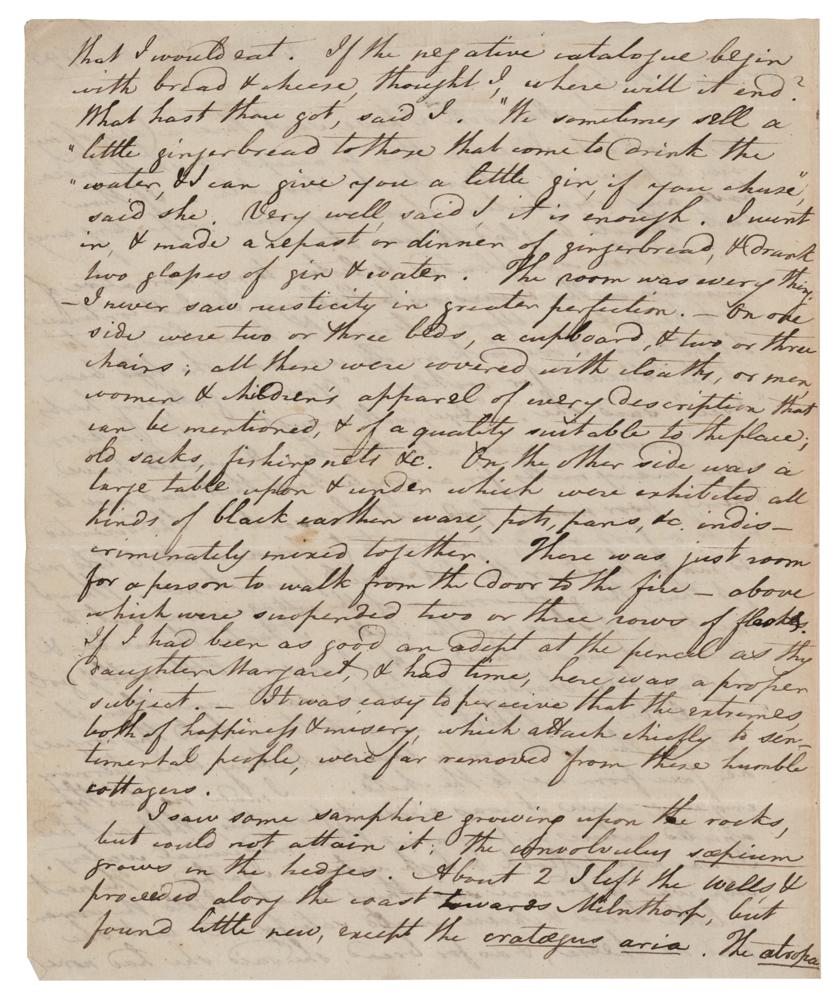 that I would eat. If the negative catalogue begin
with bread & cheese, thought I, where will it end?
What hast thou got, said I. "We sometimes sell a
"little gingerbread to those that come to drink the
"water, & I can give you a little gin, if you chuse",
said she. Very well, said I, it is enough. I went
in, & made a repast or dinner of gingerbread, & drank
two glasses of gin & water. The room was every thing
– I never saw rusticity in greater perfection. – On one
side were two or three beds, a cupboard, & two or three
chairs; all these were covered with cloaths, or men,
women & children's apparel of every description that
can be mentioned, & of a quality suitable to the place;
old sacks, fishing nets &c. On the other side was a
large table upon & under which were exhibited all
kinds of black earthen ware, pots, pans, &c. indis–
criminately mixed together. There was just room
for a person to walk from the door to the fire – above
which were suspended two or three rows of flasks.
If I had been as good an adept at the pencil as thy
daughter Margaret, & had time, here was a proper
subject. – It was easy to perceive that the extremes
both of happiness & misery, which attach chiefly to sen–
timental people, were far removed from these humble
cottagers.
I saw some samphire growing upon the rocks,
but could not attain it; the convolvulus sæpium
grows in the hedges. About 2 I left the wells &
proceeded along the coast towards Milnthorp, but
found little new, except the cratægus aria. The atropa